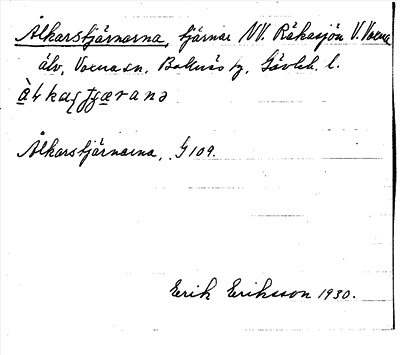 Ålkarstjärnarna, tjärnar NV. Råkasjön V. Voxna
älv, Voxna sn, Bollnäs tg, Gävleb. l.
Ålkarstjärnarna, G 109.
Erik Eriksson 1930.